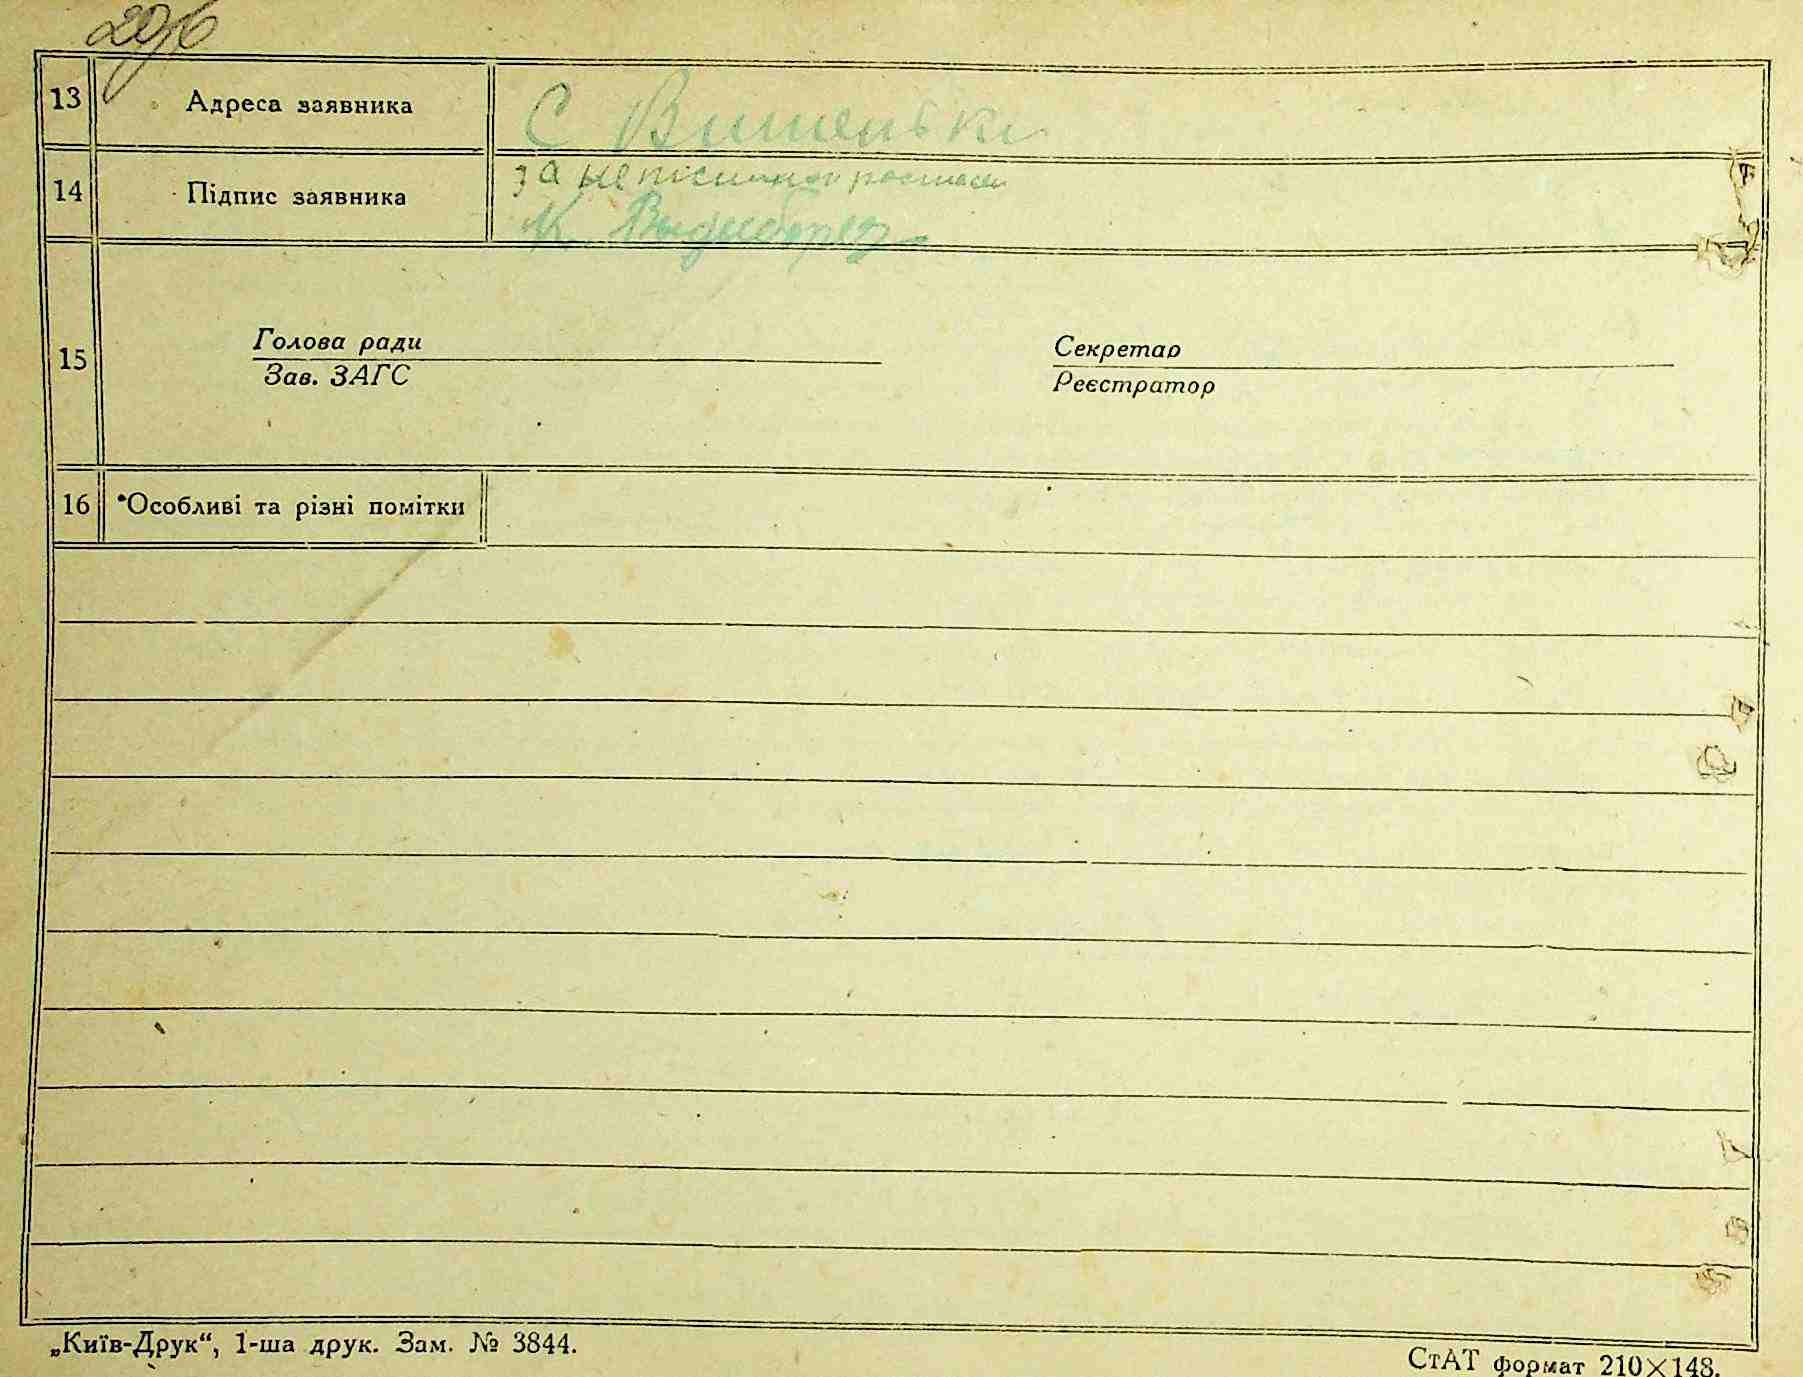 13 Адреса заявника С Вишеньки
14 Підпис заявника за неписьменого
К
15 Голова ради Секретар
Зав. ЗАГС Реєстратор
16 Особливі та різні помітки
„Київ-Друк“, 1-ша друк. Зам. № 3844.
СтАТ формат 210×148.